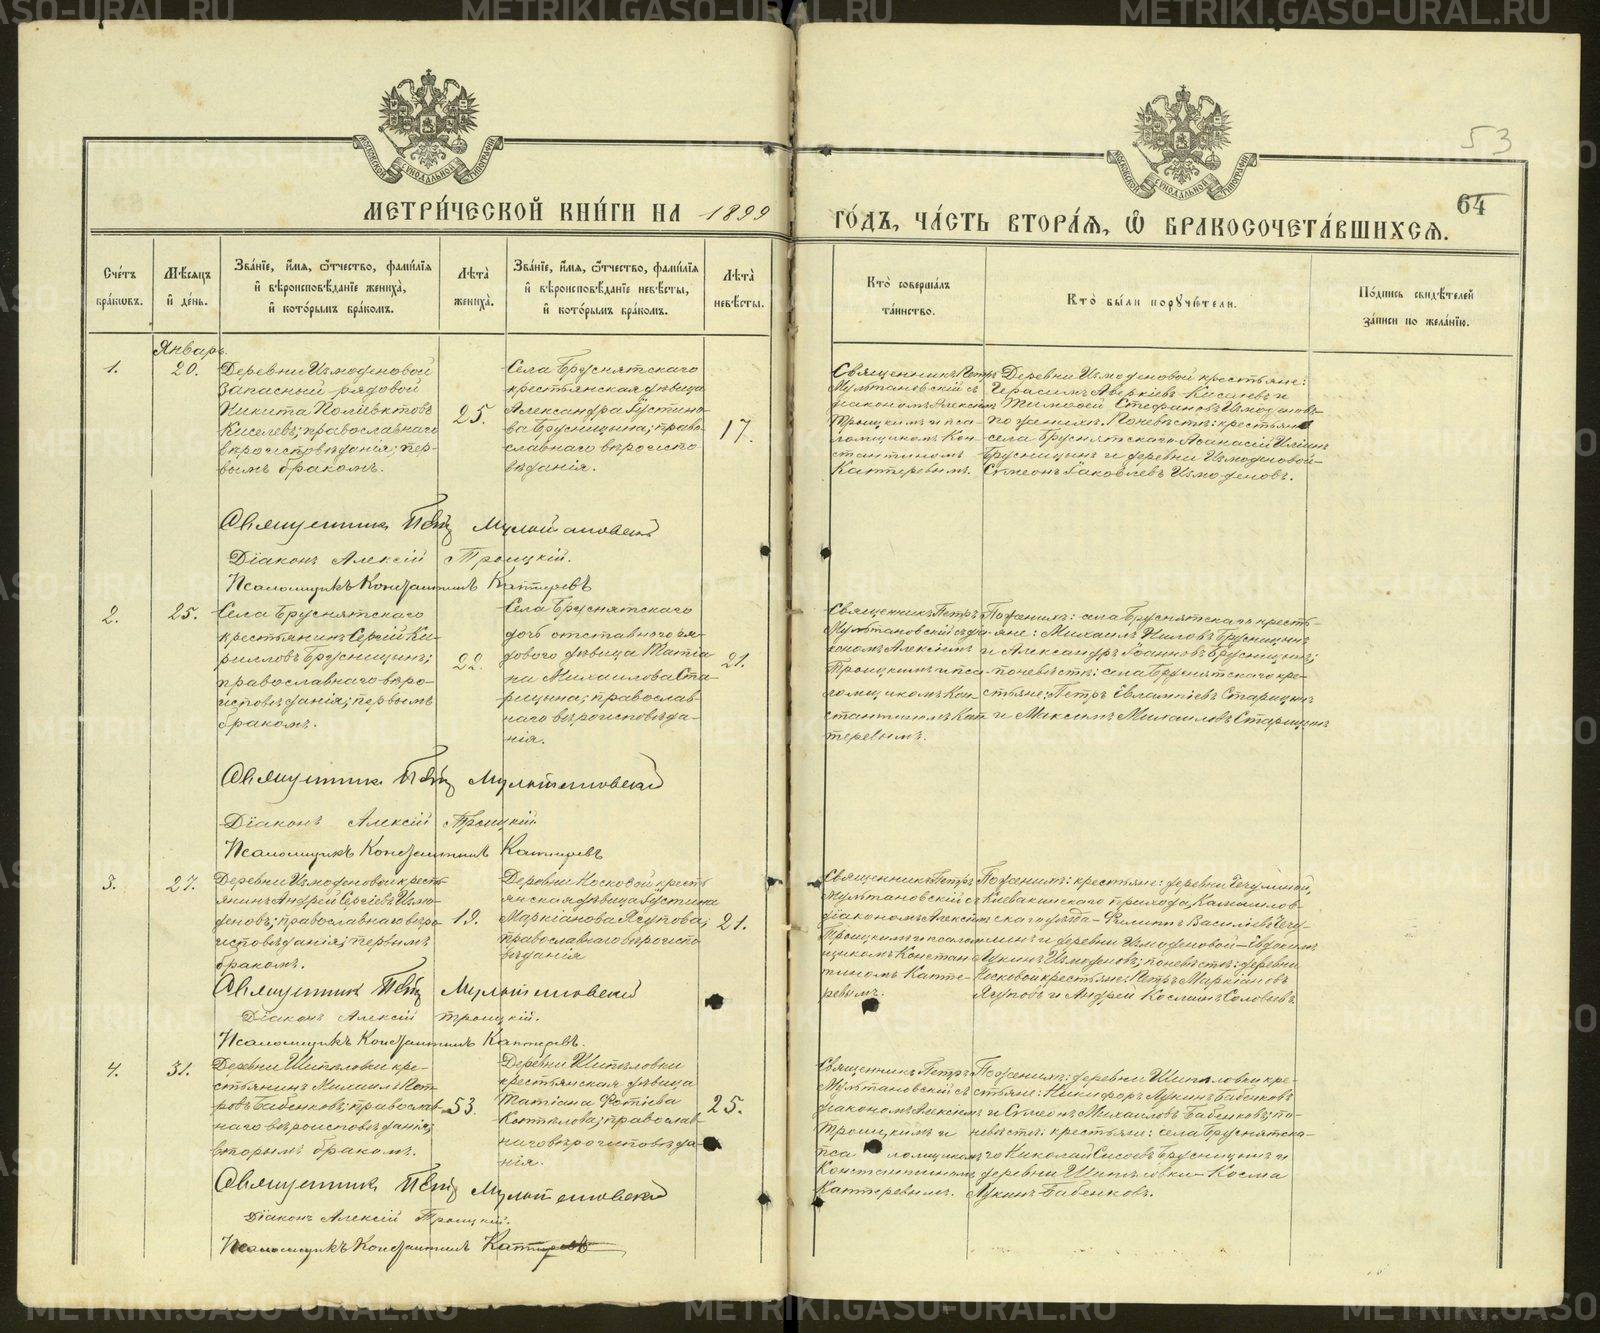 53
64
МЕТРИ́ЧЕСКОЙ КНИ́ГИ НА 1899
ГО́ДЪ, ЧА́СТЬ ВТОРА́Я, Ѿ БРАКОСОЧЕТА́ВШИХСЯ.
Счетъ браковъ.
Мѣсяцъ и день.
Званіе, имя, отчество, фамилія
и вѣроисповѣданіе жениха,
и которымъ бракомъ.
Лѣта жениха.
Званіе, имя, отчество, фамилія
и вѣроисповѣданіе невѣсты,
и которымъ бракомъ.
Лѣта невѣсты.
Кто совершалъ таинство.
Кто были поручители.
Подпись свидѣтелей
записи по желанію.
Январь.
1.
20.
Деревни Измоденовой
запасный рядовой
Никита Поливктовъ
Киселевъ; православнаго
вѣроисповѣданія; пер-
вымъ бракомъ.
25.
Села Бруснятскаго
крестьянская дѣвица
Александра Іустино-
ва Брусницына; право-
славнаго вѣроиспо
вѣданія.
17.
Священникъ Петръ
Мультановскій съ
діакономъ Алексіемъ
Троицкимъ и пса-
ломщикомъ Кон-
стантиномъ
Каптеревымъ.
Деревни Измоденовой крестьяне:
Герасимъ Аверкіевъ Киселевъ и
Тимофей Стефановъ Измоденовъ-
по женихѣ. По невѣстѣ: крестьяне
села Бруснятскаго Афанасій Иліинъ
Брусницынъ и деревни Измоденовой-
Сѵмеонъ Іаковлевъ Измоденовъ.
Священникъ Петръ Мультановскій
Діаконъ Алексій Троицкій.
Псаломщикъ Константинъ Каптеревъ
2.
25.
Села Бруснятскаго
крестьянинъ Сергій Ки-
рилловъ Брусницынъ;
православнаго вѣро-
исповѣданія; первымъ
бракомъ.
22.
Села Бруснятскаго
дочь отставного ря-
дового дѣвица Татіа
на Михаилова Ста
рицына; православ-
наго вѣроисповѣда-
нія.
21.
Священникъ Петръ
Мультановскій съ діа-
кономъ Алексіемъ
Троицкимъ и пса-
ломщикомъ Кон-
стантиномъ Кап
теревымъ.
По женихѣ: села Бруснятскаго кресть-
яне: Михаилъ Ниловъ Брусницынъ
и Александръ Іоанновъ Брусницынъ;
по невѣстѣ: села Бруснятскаго кре-
стьяне: Петръ Евлампіевъ Старицынъ
и Максимъ Михаиловъ Старицынъ
Священникъ Петръ Мультановскій
Діаконъ Алексій Троицкій.
Псаломщикъ Константинъ Каптеревъ
3.
27.
Деревни Измоденовой кресть-
янинъ Андрей Сергіевъ Измо-
деновъ; православнаго вѣро-
исповѣданія; первымъ
бракомъ.
19.
Деревни Носковой кресть
янская дѣвица Іустина
Маркіанова Ягупова;
православнаго вѣроиспо
вѣданія
21.
Священникъ Петръ
Мультановскій съ
діакономъ Алексіем
Троицкимъ и псалом
щикомъ Констан
тиномъ Капте-
ревымъ.
По женихѣ: крестьяне: деревни
прихода, Камышлов-
скаго уѣзда - Филиппъ Василіевъ
и деревни Измоденовой - Евдокимъ
Лукинъ Измоденовъ; по невѣстѣ: деревни
Носковой крестьяне: Петръ Маркіановъ
Ягуповъ и Андрей Косминъ Соловьевъ.
Священникъ Петръ Мультановскій
Діаконъ Алексій Троицкій.
Псаломщикъ Константинъ Каптеревъ.
4.
31.
Деревни Шипѣловки кре-
стьянинъ Михаилъ Пет
ровъ Бабенковъ; православ-
наго вѣроисповѣданія;
вторымъ бракомъ.
53.
Деревни Шипѣловки
крестьянская дѣвица
Татіана Фотіева
Коптѣлова; православ-
наго вѣроисповѣда-
нія.
25.
Священникъ Петръ
Мультановскій съ
діакономъ Алексіем
Троицкимъ и
псаломщикомъ
Константиномъ
Каптеревымъ.
По женихѣ: деревни Шипѣловки кре-
стьяне: Никифоръ Лукинъ Бабенковъ
и Сѵмеонъ Михаиловъ Бабенковъ; по
невѣстѣ: крестьяне: села Бруснятска-
го Николай Сисоевъ Брусницынъ и
деревни Шипѣловки - Косма
Лукинъ Бабенковъ.
Священникъ Петръ Мультановскій
Діаконъ Алексій Троицкій.
Псаломщикъ Константинъ Каптеревъ
METRIKI.GASO-URAL.RU